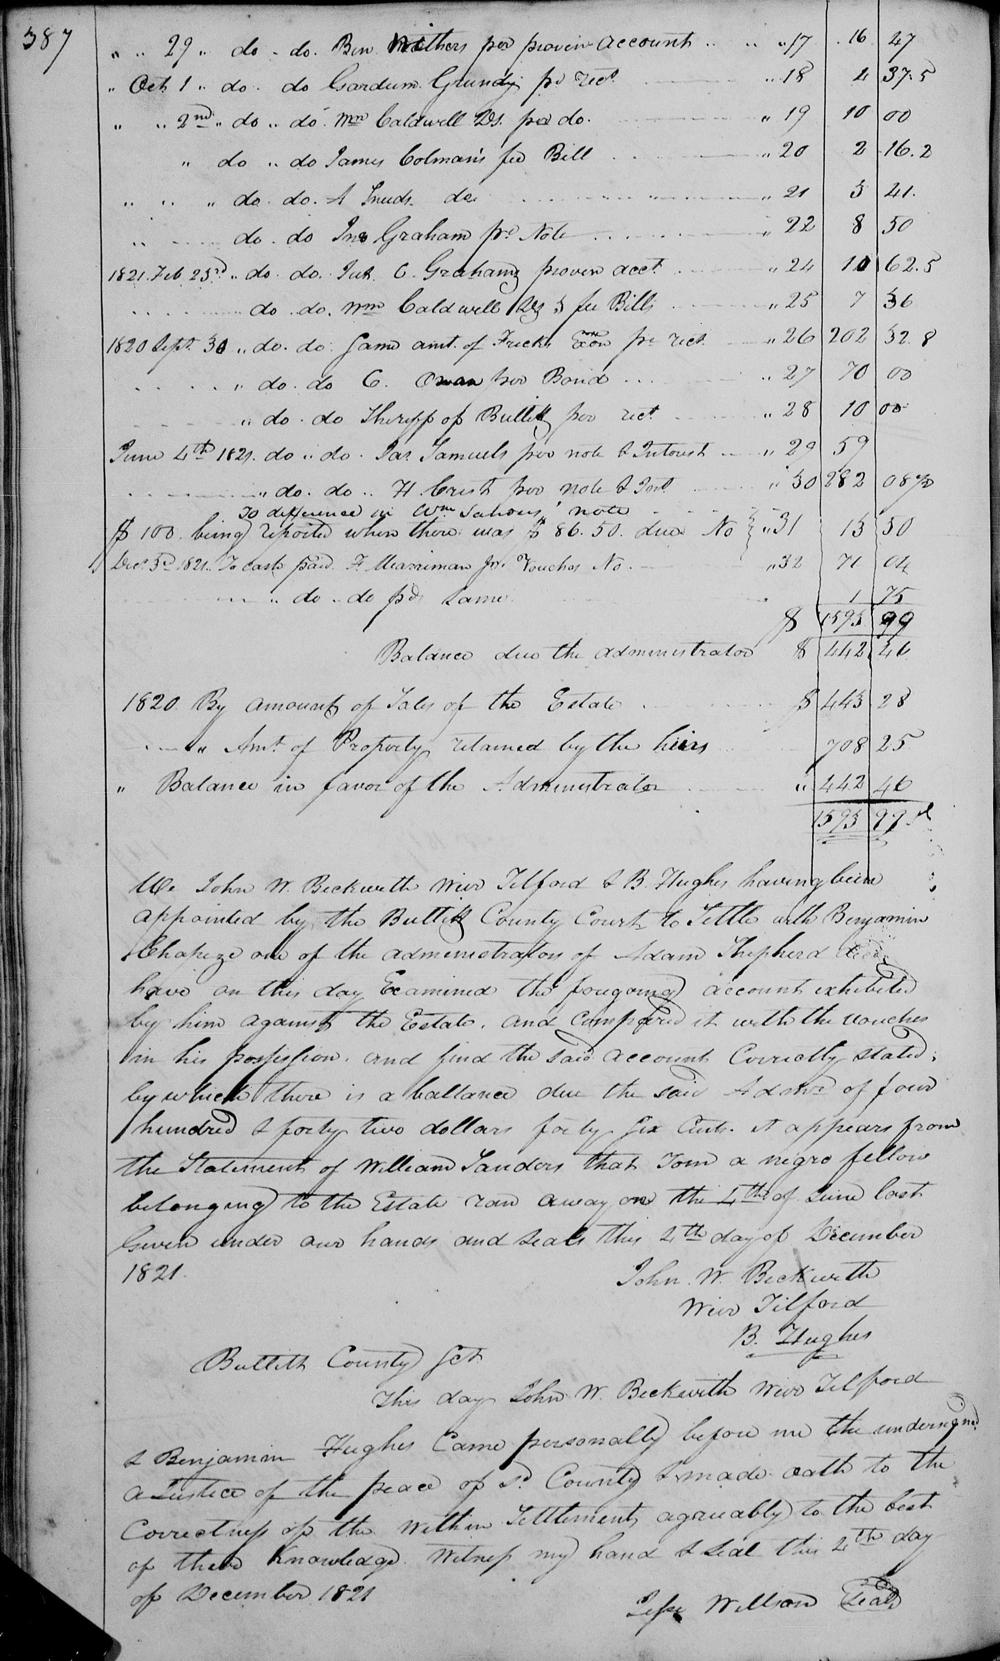 387
" " 29 " do . do. Ben Withers per proven account .. .. "17 16 47
" Oct 1 " do . do Gardum Grundy pr rect "18 4 37.5
" " 2nd " do " do. Wm Caldwell Ds. per do. "19 10 00
" do " do James Colman's fee Bill "20 2 16.2
" " " do. do. A Sneeds do "21 3 41.
do . do Jno Graham pr Note "22 8 50
1821. Feb 23rd " do. do. C. Graham proven acct "24 10 62.5
do . do. Wm Caldwell Ds 3 fee Bills "25 7 36
1820 Sept 30 " do. do. Same amt. of Exon pr rect "26 202 32.8
" do. do C. per Bond "27 70 00
" do. do Sheriff of Bullitt per rect "28 10 00
June 4th 1821. do " do. Jas. Samuels per note & Interest "29 59
" do. do .. H. Crist per note & Int "30 282 08
To difference in Wm note
$ 100. being reported when there was $ 86.50. due No "31 13 50
Decr 3d 1821. To cash paid F Merriman pr Voucher No. "32 71 04
" do .. do pd Same 1 75
$ 1593 99
Balance due the administrator $ 442 46
1820 By amount of Sales of the Estate $ 443 28
" Amt. of Property retained by the heirs 708 25
" Balance in favor of the Administrator " 442 46
1593 99
We John W. Beckwith Wier Tilford & B. Hughes having been
appointed by the Bullitt County Court to Settle with Benjamin
Chapeze one of the administrators of Adam Shepherd Decd
have on this day Examined the foregoing account exhibited
by him against the Estate. and Compared it with the vouches
in his possession. and find the said account Correctly stated;
by which there is a ballance due the said Admr. of four
hundred & forty two dollars forty Six Cents. it appears from
the Statement of William Sanders that Tom a negro fellow
belonging to the Estate ran away on the 4th of June last
Given under our hands and Seals this 4th day of December
1821.
John W. Beckwith
Wier Tilford
B. Hughes
Bullitt County Sct
This day John W. Beckwith Wier Tilford
& Benjamin Hughes Came personally before me the undersigned
a Justice of the peace of Sd. County & made oath to the
Correctness of the Within Settlement, agreeably to the best
of there Knowledge. Witness my hand & Seal this 4th day
of December 1821
Jesse Willson Seal